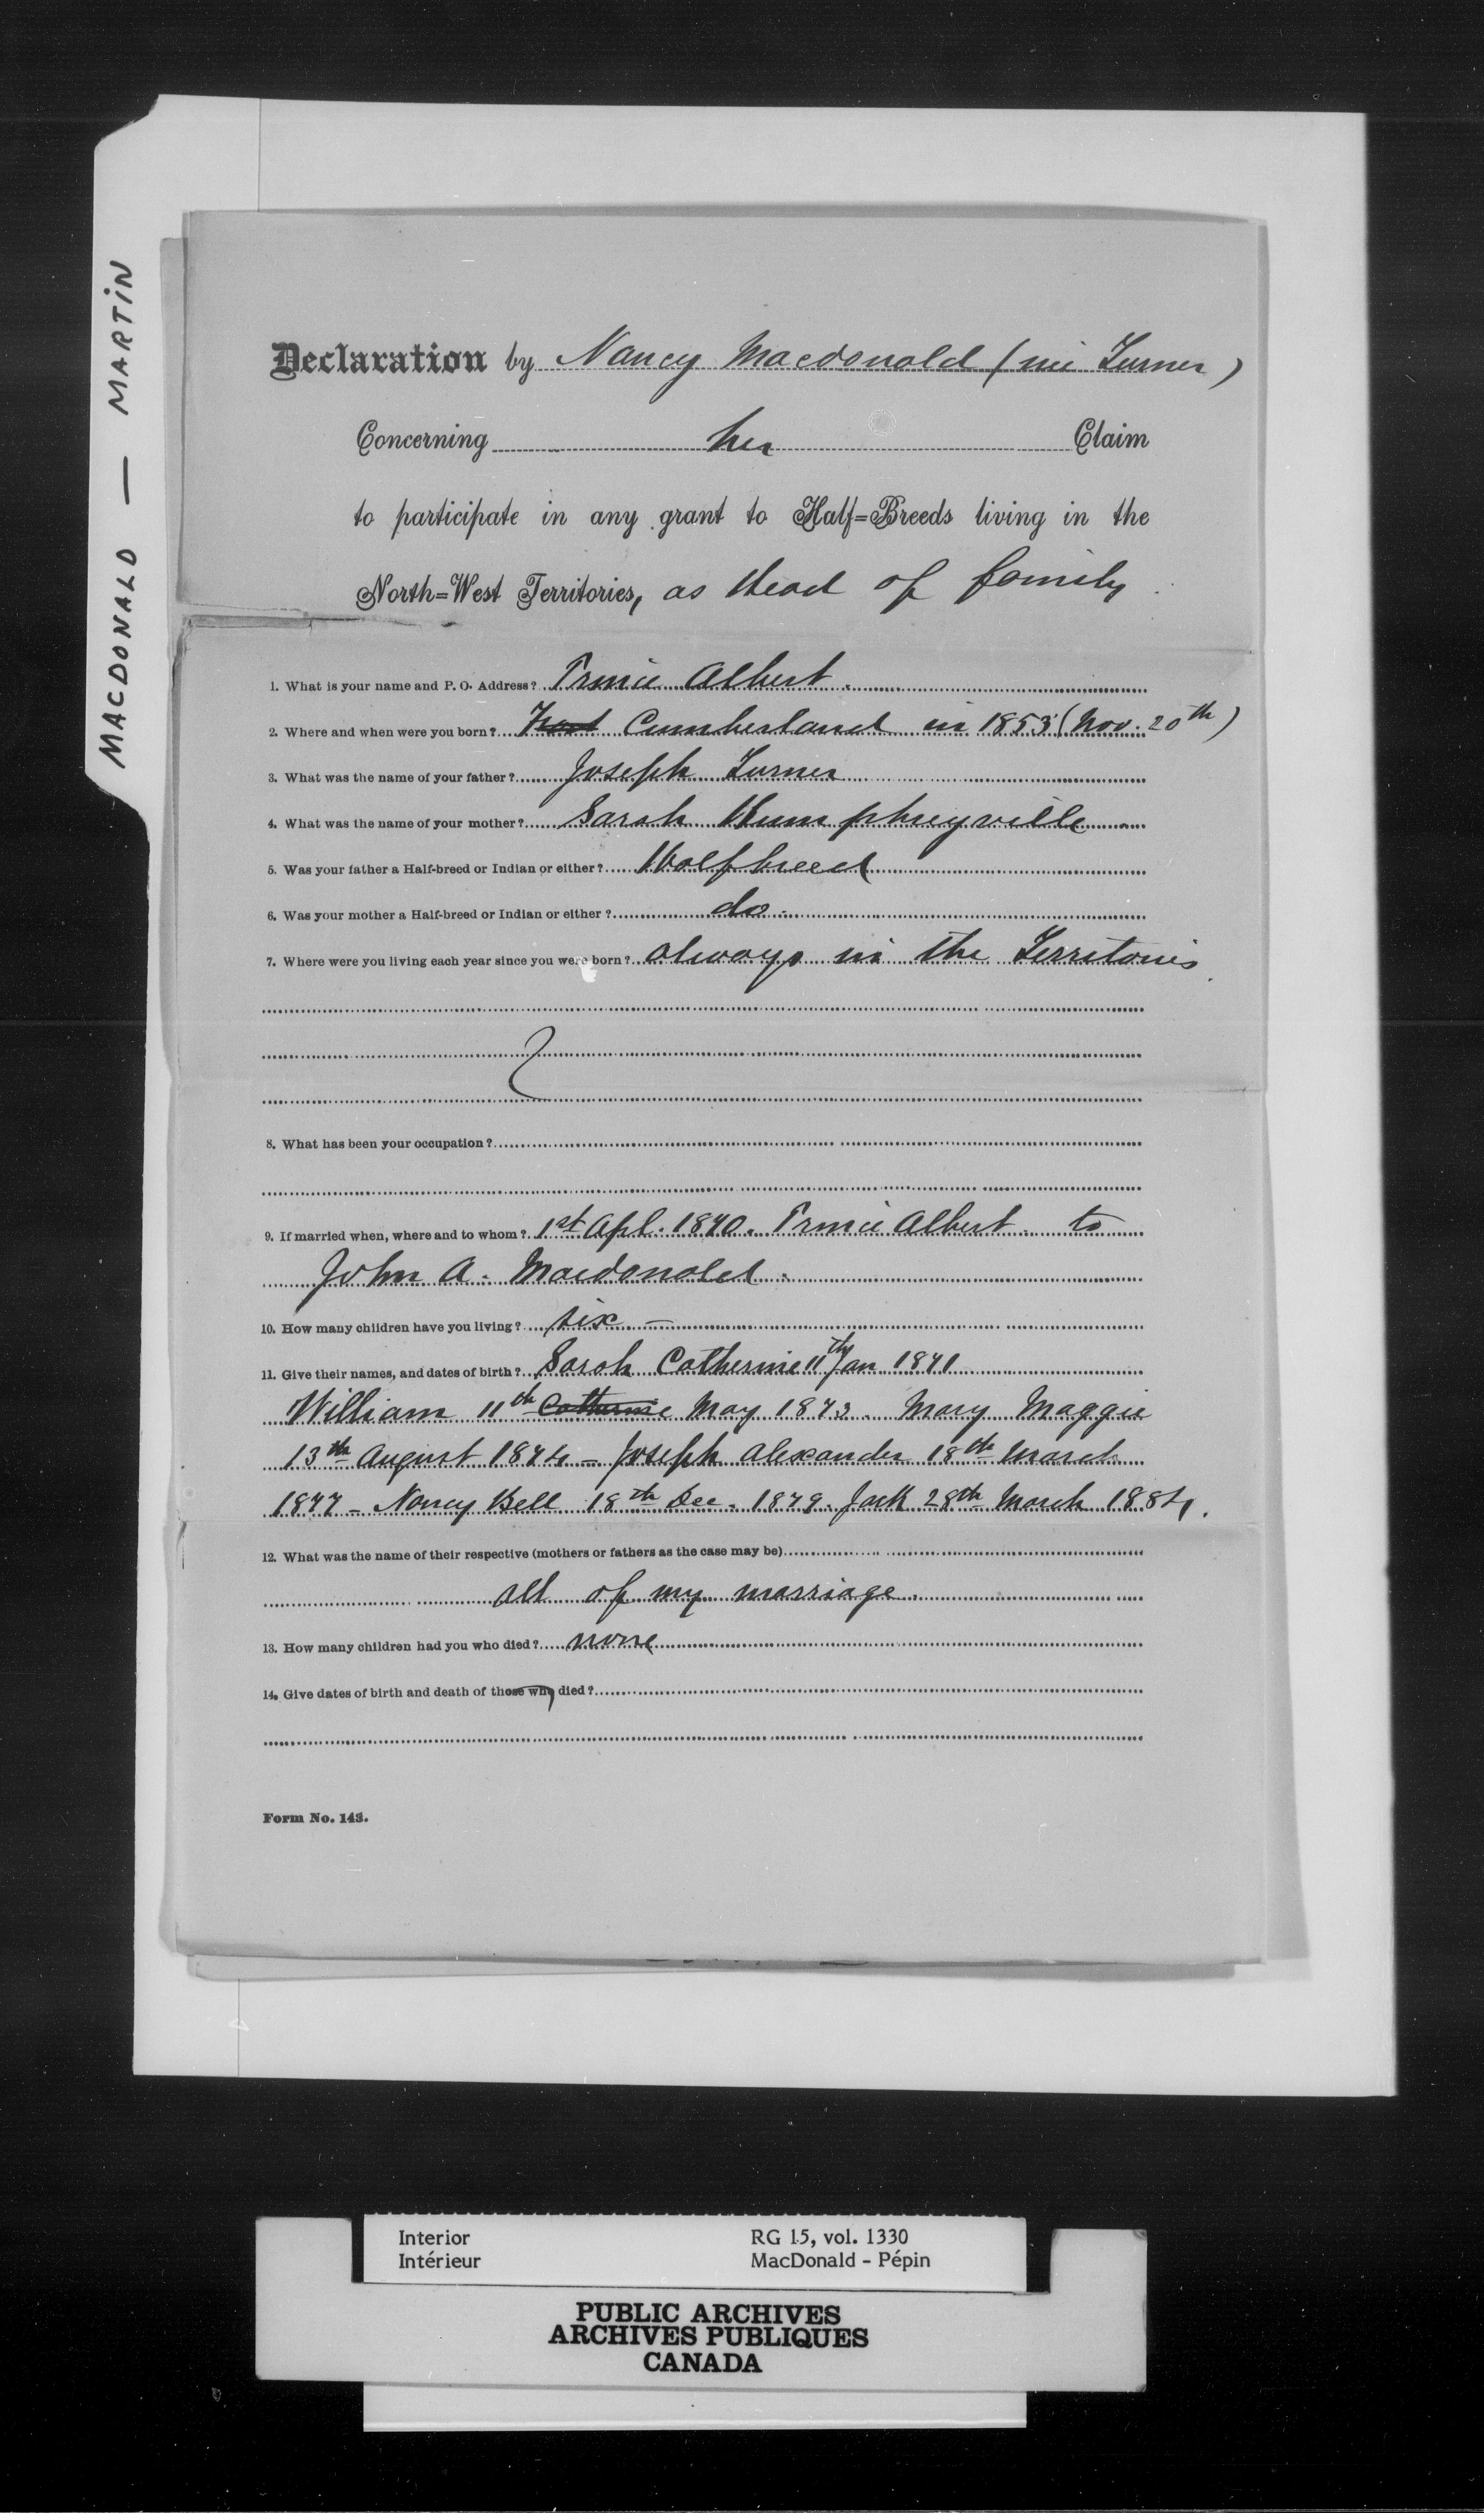 MACDONALD — MARTIN
Declaration by Nancy Macdonald (née Turner)
Concerning her Claim
to participate in any grant to Half=Breeds living in the
North=West Territories, as Head of family
1. What is your name and P. O. Address? Prince Albert.
2. Where and when were you born? Cumberland in 1853 (Nov. 20th)
3. What was the name of your father? Joseph Turner
4. What was the name of your mother? Sarah Humphreyville
5. Was your father a Half-breed or Indian or either? Halfbreed
6. Was your mother a Half-breed or Indian or either? do.
7. Where were you living each year since you were born? always in the Territories
8. What has been your occupation?
9. If married when, where and to whom? 1st Apl. 1870. Prince Albert. to
John A. Macdonald.
10. How many children have you living? six —
11. Give their names, and dates of birth? Sarah Catherine 11th Jan 1871
William 11th Catherine May 1873. Mary Maggie
13th August 1874 – Joseph Alexander 18th March
1877 – Nancy Bell 18th Dec. 1879. Jack 28th March 1884.
12. What was the name of their respective (mothers or fathers as the case may be)
all of my marriage.
13. How many children had you who died? none
14. Give dates of birth and death of those who died?
Form No. 143.
Interior RG 15, vol. 1330
Intérieur MacDonald - Pépin
PUBLIC ARCHIVES
ARCHIVES PUBLIQUES
CANADA